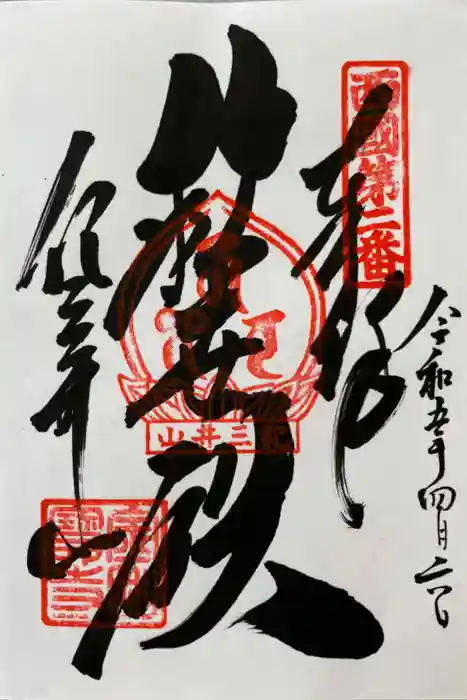 西國第二番
奉拝
令和五年四月
救世殿
紀三井山
紀三井寺